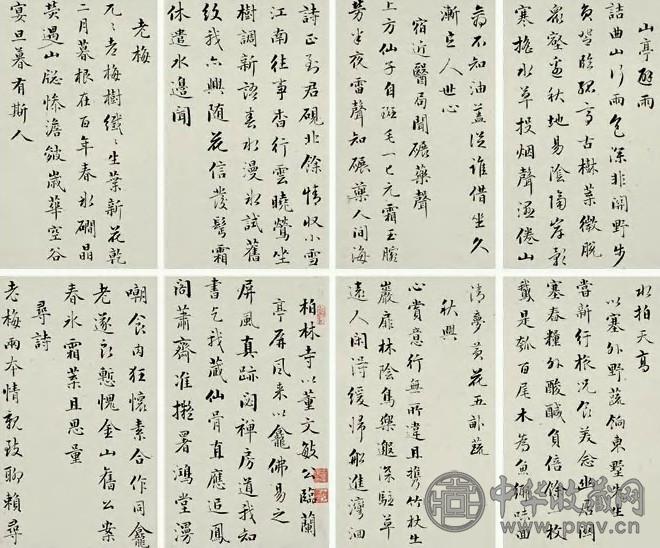 山亭避雨
詰曲山行雨色深非關野步
負登臨亭古樹葉微脫
眾壑秋地易陰岸
寒水草投烟聲濕倦山
翁不知油蓋從誰借坐久
漸忘人世心
宿近醫局聞碾藥聲
上方仙子自斑毛一一元霜玉腕
勞半夜雷聲知碾藥人間海
詩正到君硯北餘情收小雪
江南往事香行雲曉鶯坐
樹調新語春水漫試舊
紋我亦興隨花信發鬢霜
休遣水邊聞
老梅
兀兀老梅樹纖纖生葉新花乾
二月暮根在百年春水礀晶
熒過山牕慘澹皴歲華空谷
宴旦暮有斯人
水拍天高
以塞外野蔬餉東墅先生
嘗新行旅況食美念出關
塞春糧外酸鹹負倍餘
是瓠百尾木為魚獺面
清夢黃花五畝蔬
秋興
心賞意行無所違且攜竹杖生
巖扉林陰鳥樂邀深駐草
遠人閑得緩歸船進灣洄
柏林寺以董文敏公臨蘭
亭屏風來以龕佛易之
屏風真跡閟禪房道我知
書乞我藏仙骨直應追鳳
閣蕭齋准擬署鴻堂漫
嘲食肉狂懷素合作同龕
老遂良慙愧金山舊公案
春水霜葉且思量
尋詩
老梅兩本情親致聊賴尋
中华收藏网
www.pmv.cn